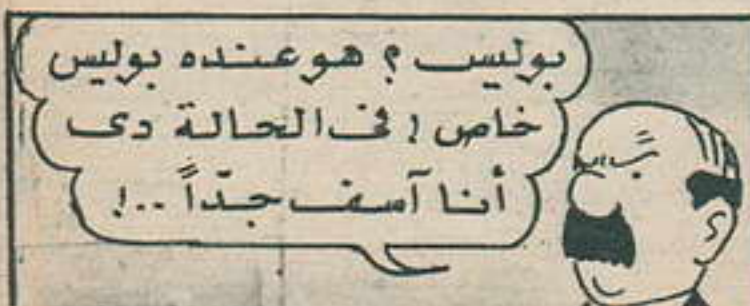 بوليس ؟ هو عنده بوليس
خاص ! فى الحالة دى
أنا آسف جداً ..!